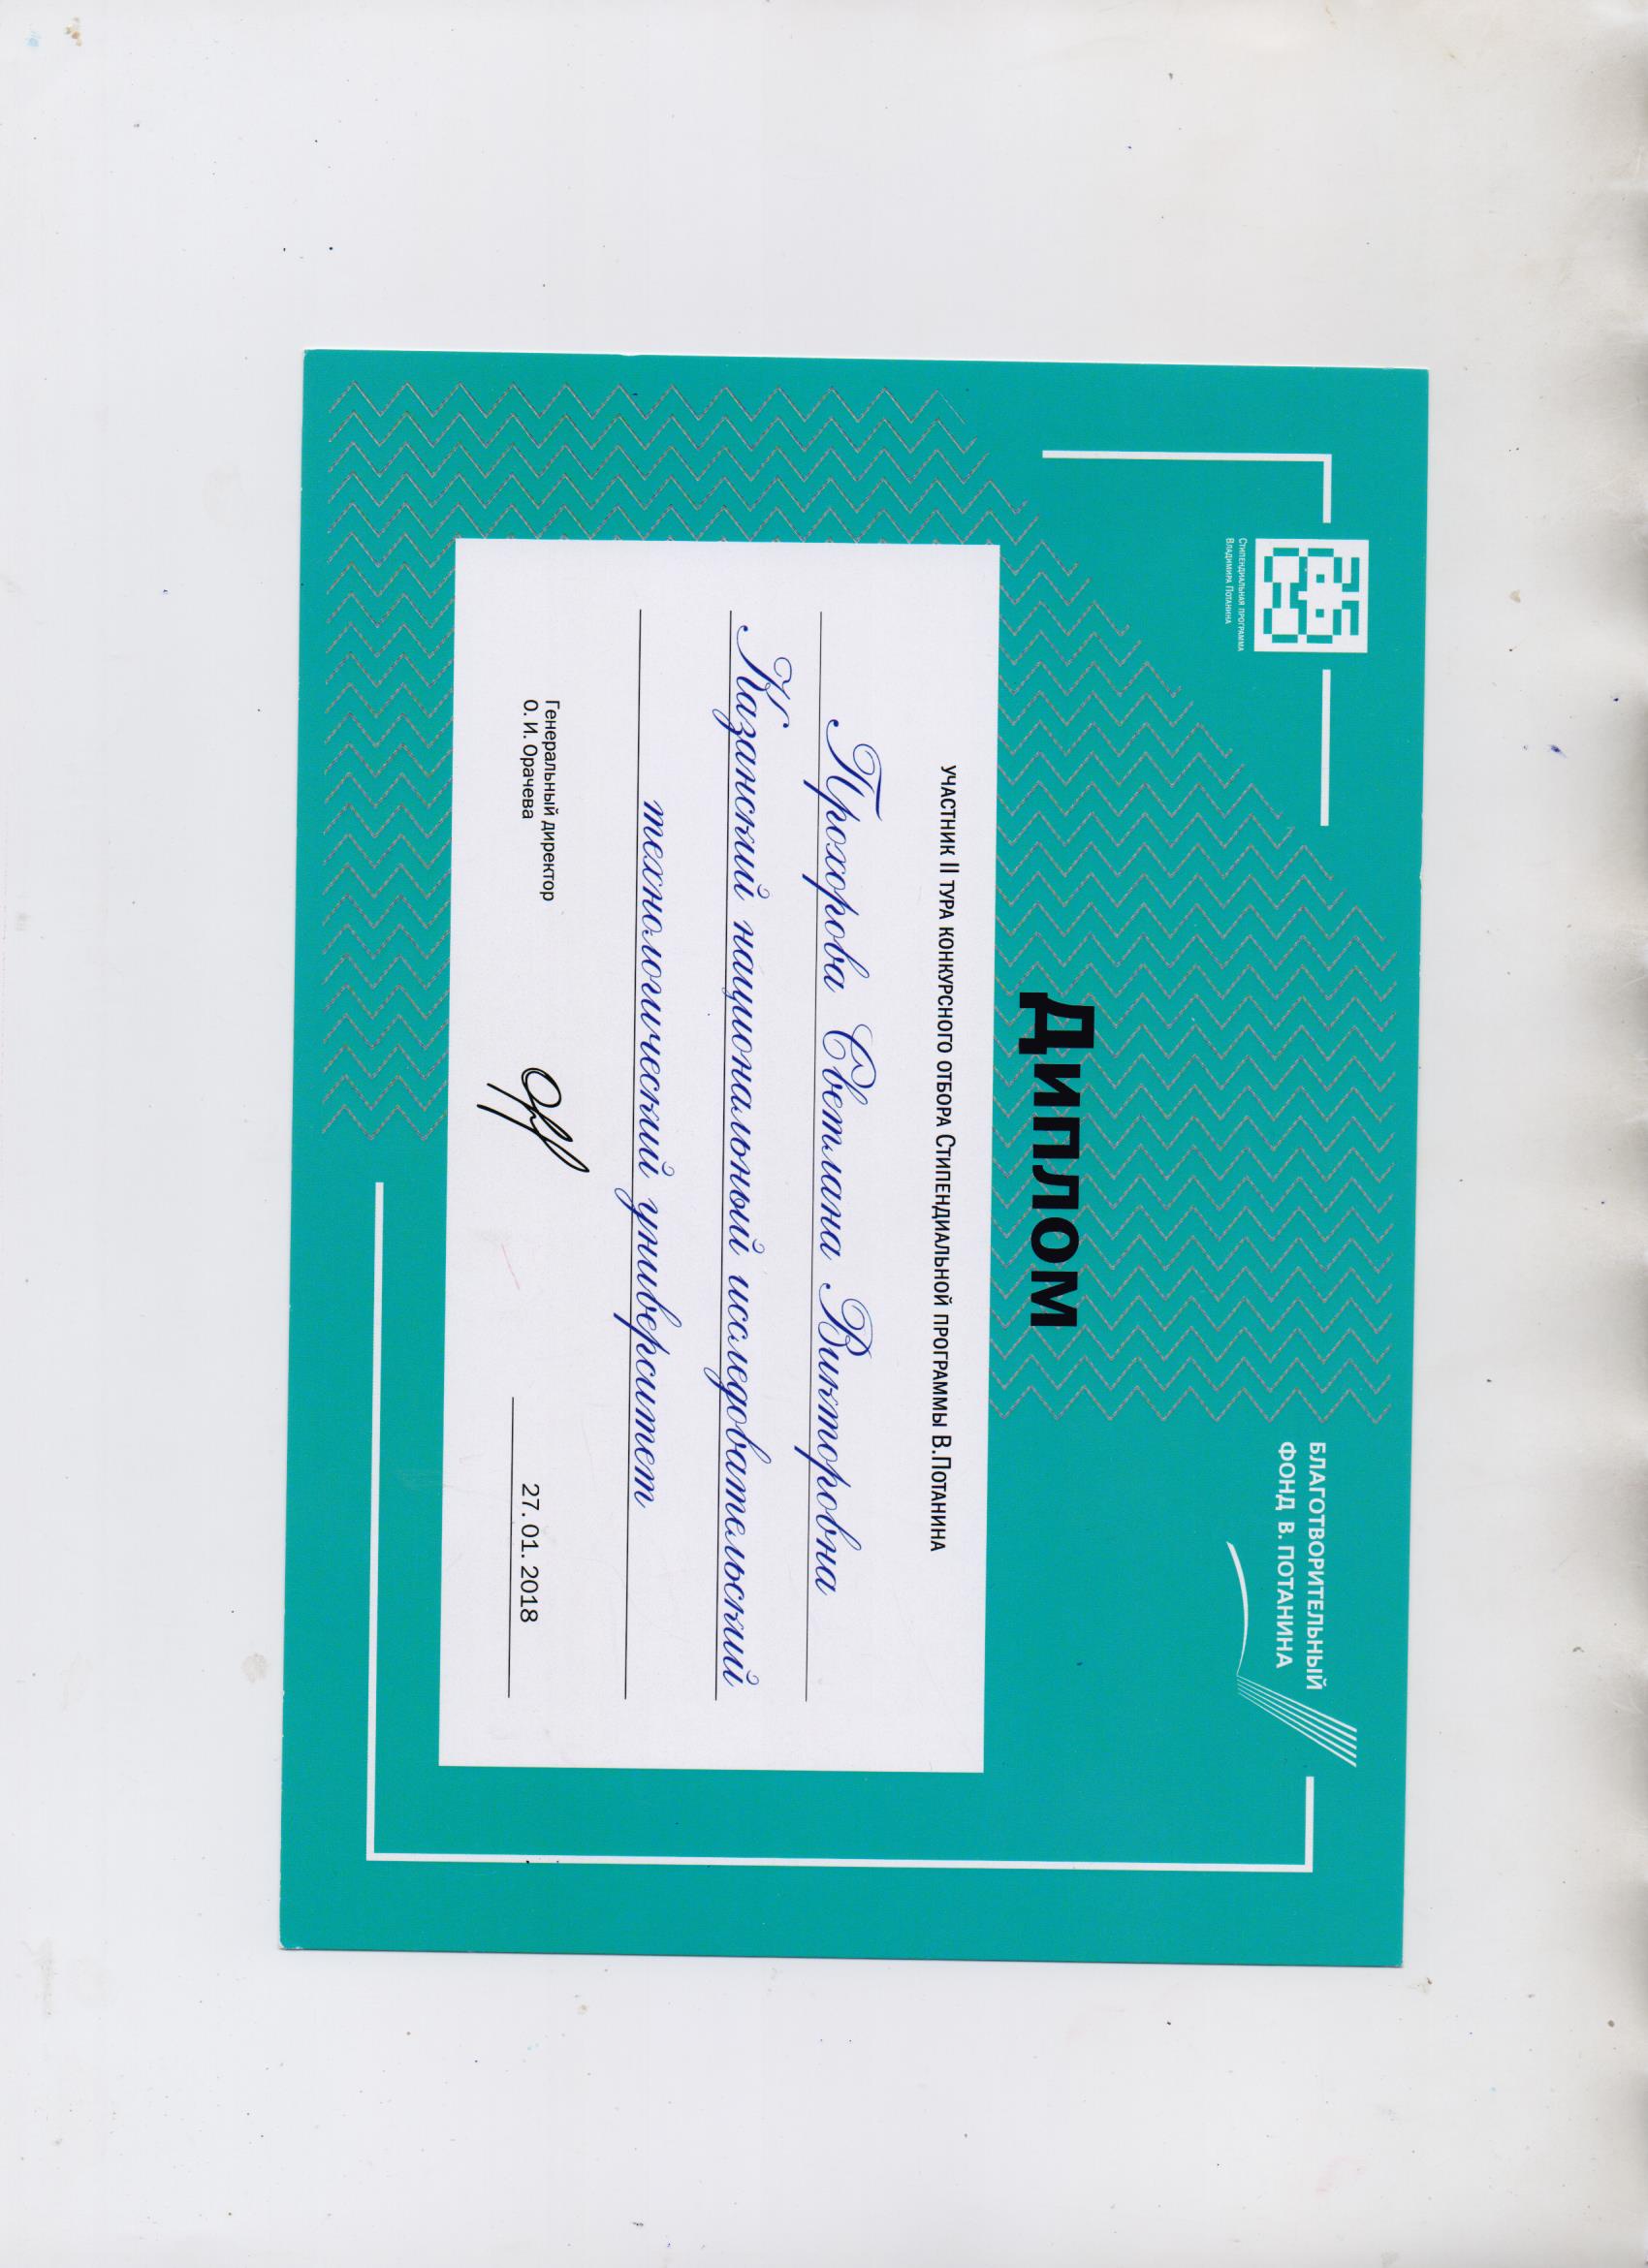 Стипендиальная программа
Владимира Потанина
БЛАГОТВОРИТЕЛЬНЫЙ
ФОНД В. ПОТАНИНА
Диплом
участник II тура конкурсного отбора Стипендиальной программы В.Потанина
Прохорова Светлана Викторовна
Казанский национальный исследовательский
технологический университет
Генеральный директор
О. И. Орачева
27. 01. 2018